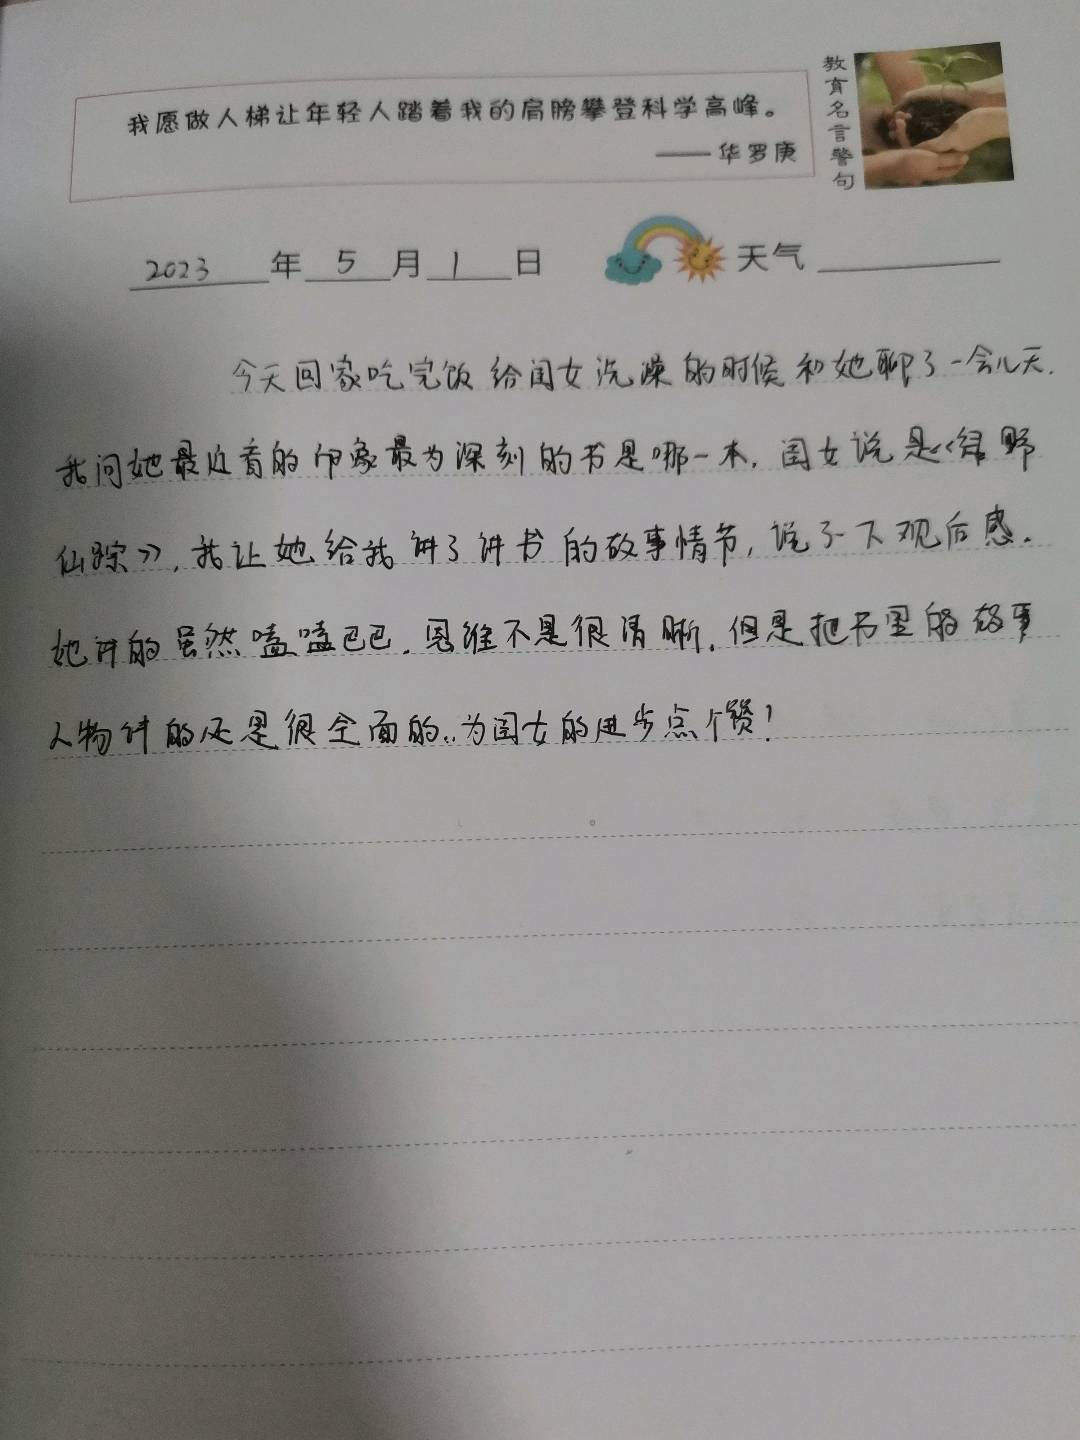 我愿做人梯让年轻人踏着我的肩膀攀登科学高峰。
——华罗庚
教育名言警句
2023年5月1日 天气
今天回家吃完饭给闺女洗澡的时候和她聊了一会儿天.
我问她最近看的印象最为深刻的书是哪一本,闺女说是《绿野
仙踪》,我让她给我讲了讲书的故事情节,说了一下观后感.
她讲的虽然嗑嗑巴巴.思维不是很清晰.但是把书里的故事
人物讲的还是很全面的..为闺女的进步点个赞!